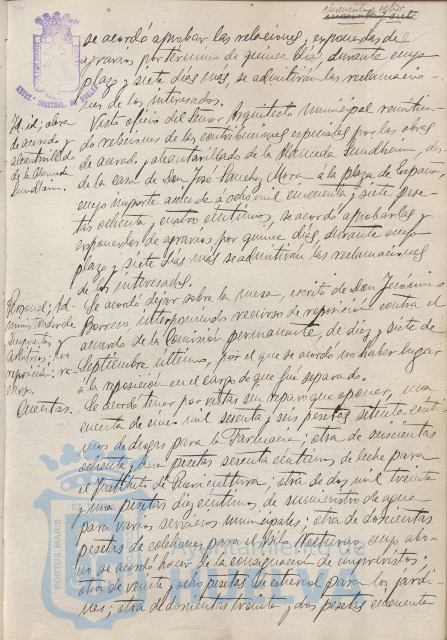 cincuenta y ocho
cuarenta y siete
se acordó aprobar las relaciones, exponerlas de
agravios por término de quince días, durante cuyo
plazo y siete días mas, se admitirán las reclamacio-
nes de los interesados.
Id. id; obra
de acerado y
alcantarillado
de la Alameda
Sundheim.
Visto oficio del Señor Arquitecto Municipal remitien-
do relaciones de las contribuciones especiales por las obras
de acerado y alcantarillado de la Alameda Sundheim, des-
de la casa de Don José Sánchez Mora a la plaza de
cuyo importe asciende a ocho mil cincuenta y siete pese-
tas ochenta y cuatro céntimos, se acordó aprobarlas y
exponerlas de agravios por quince días, durante cuyo
plazo y siete días mas se admitirán las reclamaciones
de los interesados.
Personal; Ad-
ministrador de
Impuestos y
Arbitrios;
reposición; re-
curso.
Se acordó dejar sobre la mesa, escrito de Don Jerónimo
Borrero interponiendo recurso de reposición contra el
acuerdo de la Comisión permanente, de diez y siete de
Septiembre último, por el que se acordó no haber lugar
a la reposición en el cargo de que fué separado.
Cuentas.
Se acordó tener por vistas sin reparo que oponer, una
cuenta de mil sesenta y seis pesetas setenta cénti-
mos de drogas para la Farmacia; otra de seiscientas
ochenta y una pesetas sesenta céntimos de leche para
el Instituto de Puericultura; otra de dos mil treinta
y una pesetas diez céntimos de suministro de agua
para varios servicios municipales; otra de doscientas
pesetas de colchones para el Asilo Nocturno cuyo abo-
no se acordó hacer de la consignación de imprevistos;
otra de veinte y ocho pesetas de para los jardi-
nes; otra de doscientas treinta y dos pesetas cincuenta
PORTUS MARIS
Ayuntamiento de
HUELVA